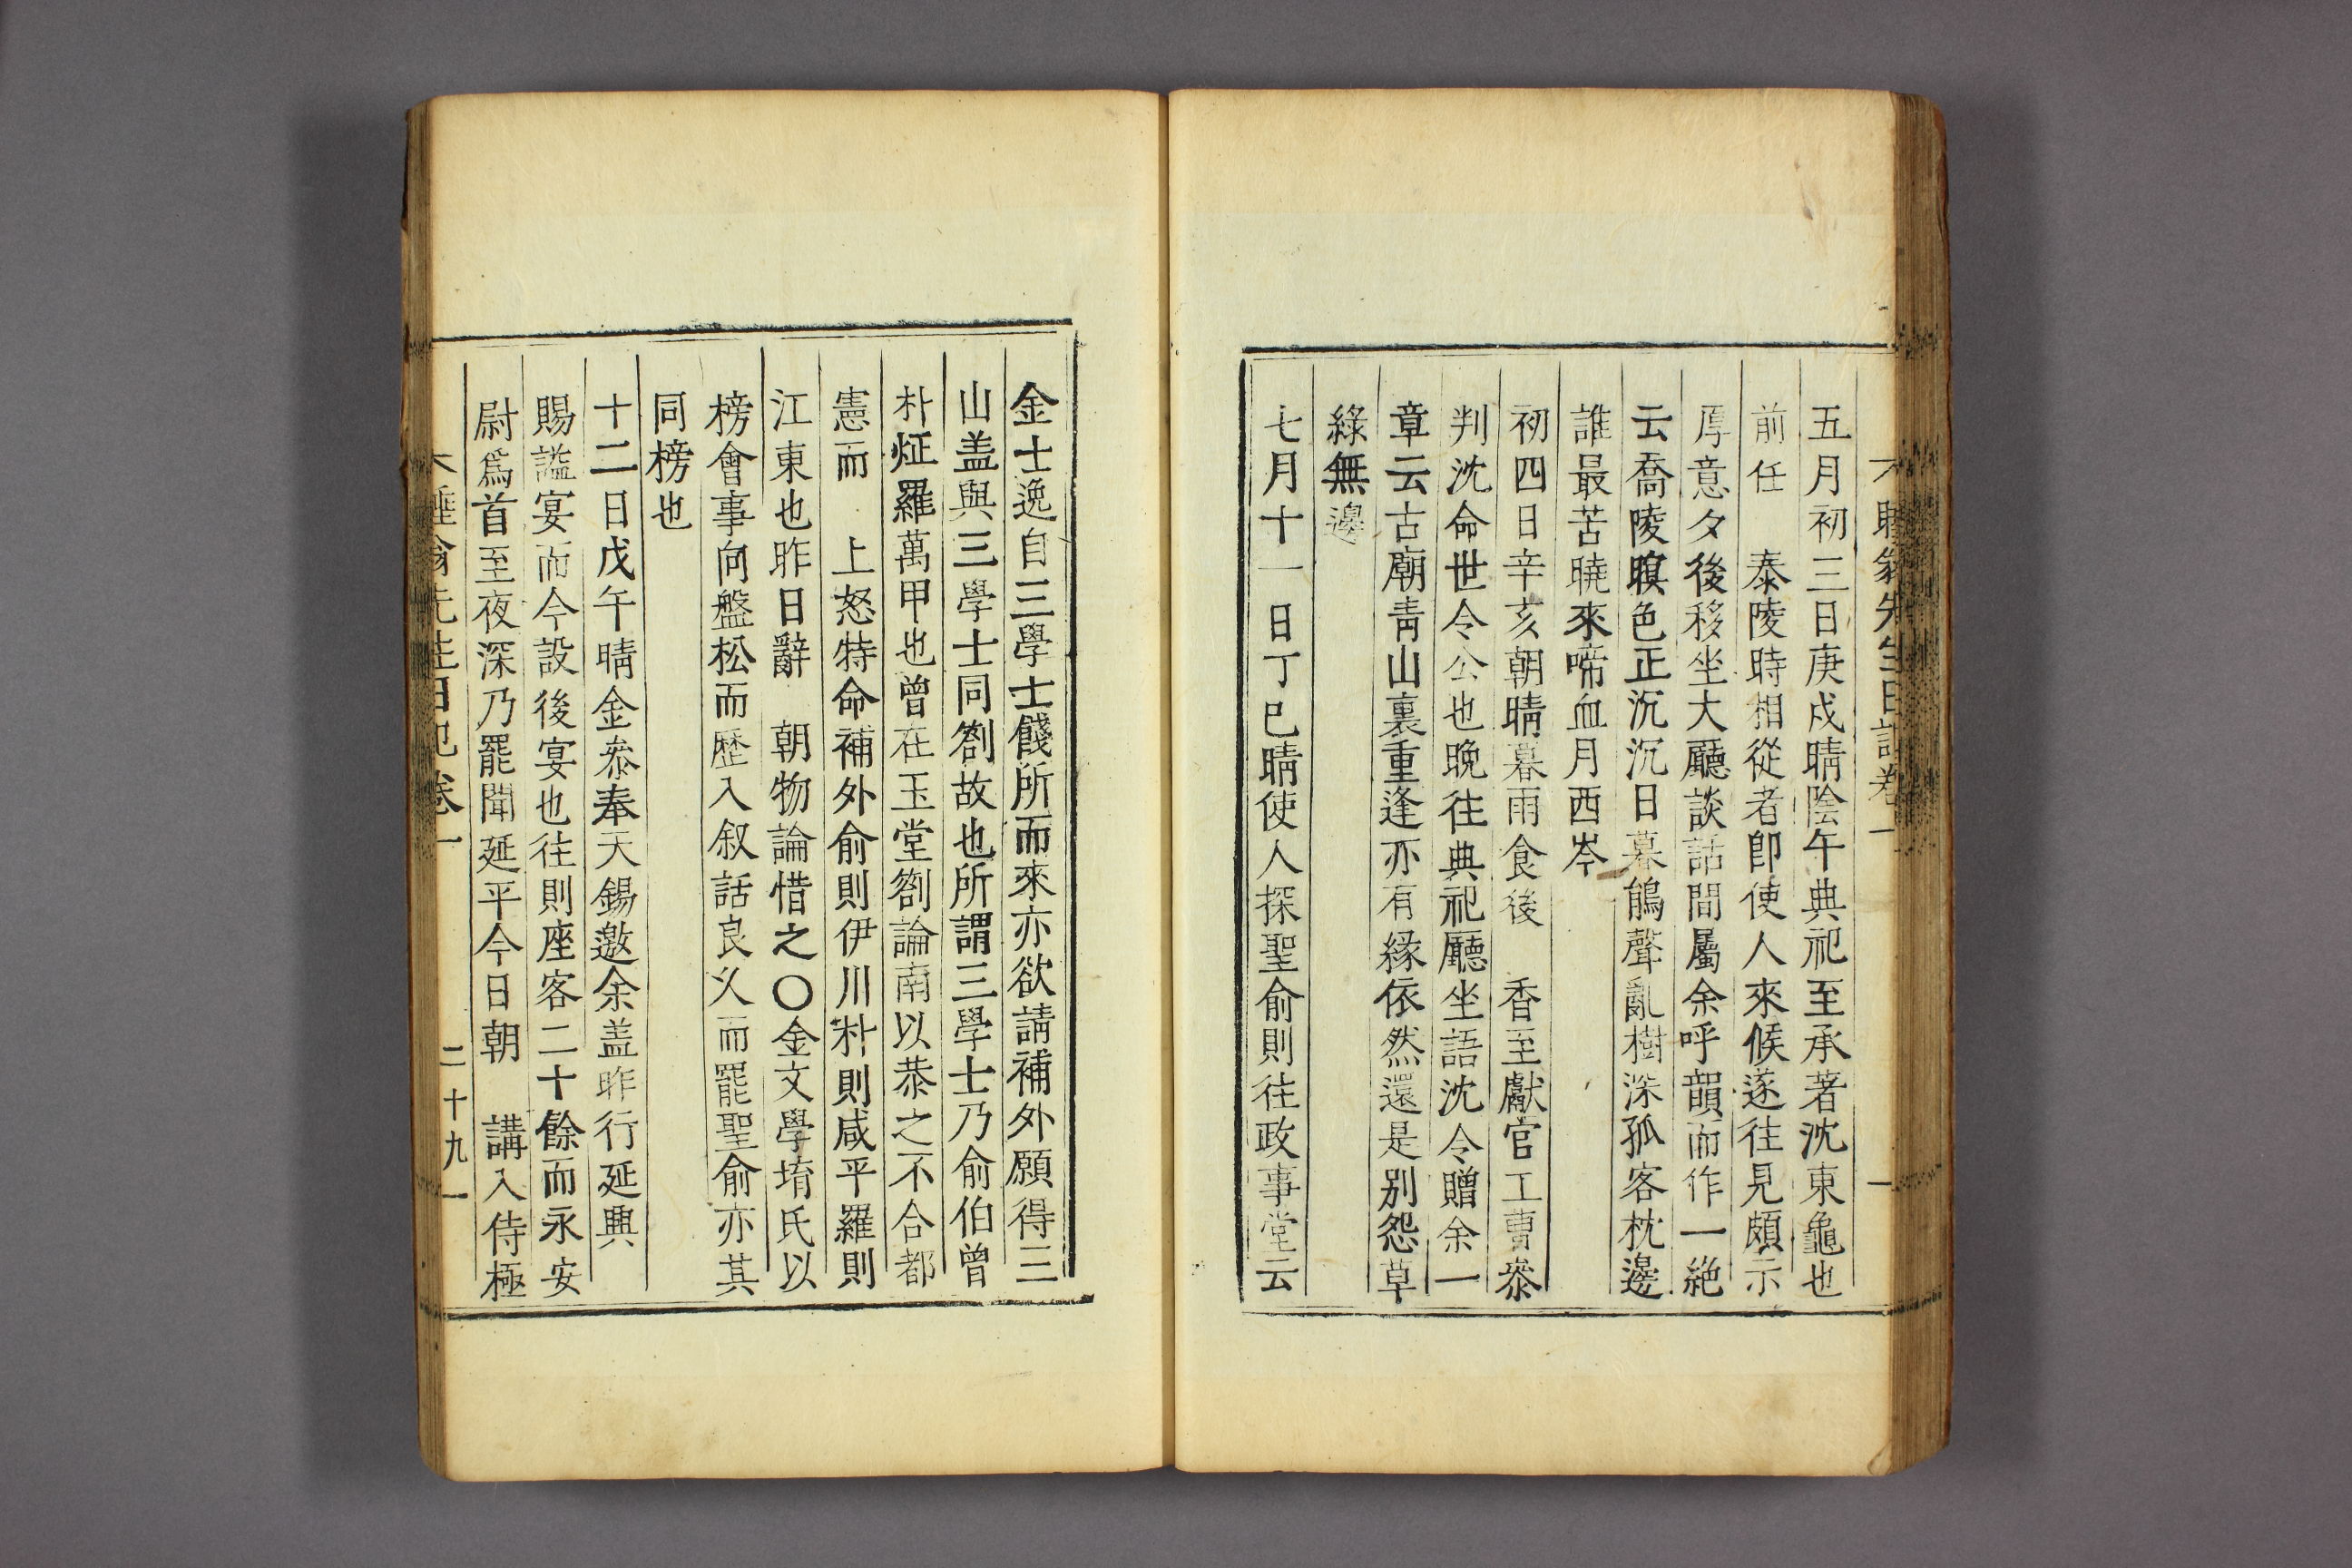 睡翁先生日記卷一
五月初三日庚戌晴陰午典祀至承著沈東龜也
前任　泰陵時相從者卽使人來候遂往見頗示
厚意夕後移坐大廳談話間屬余呼韻而作一絶
云喬陵暝色正沉沉日暮鵑聲亂樹深孤客枕邊
誰最苦曉來啼血月西岑
初四日辛亥朝晴暮雨食後　香至獻官工曹叅
判沈命世令公也晚往典祀廳坐語沈令贈余一
章云古廟靑山裏重逢亦有緣依然還是別怨草
綠無邊
七月十一日丁巳晴使人探聖俞則往政事堂云
金士逸自三學士餞所而來亦欲請補外願得三
山盖與三學士同劄故也所謂三學士乃俞伯曾
朴炡羅萬甲也曾在玉堂劄論南以恭之不合都
憲而　上怒特命補外俞則伊川朴則咸平羅則
江東也昨日辭　朝物論惜之〇金文學堉氏以
榜會事向盤松而歷入叙話良久而罷聖俞亦其
同榜也
十二日戊午晴金叅奉天錫邀余盖昨行延興
賜謚宴而今設後宴也往則座客二十餘而永安
尉爲首至夜深乃罷聞延平今日朝　講入侍極
睡翁先生日記卷一　二十九